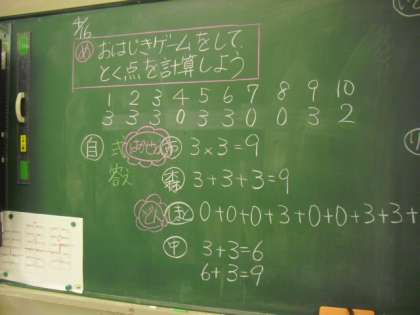 9/6
め おはじきゲームをして、
とく点を計算しよう
1 2 3 4 5 6 7 8 9 10
3 3 3 0 3 3 0 0 3 2
自 式 はかせ 3×3=9
答え 森 3+3+3=9
どん ほ 0+0+0+3+0+0+3+3+
甲 3+3=6
6+3=9